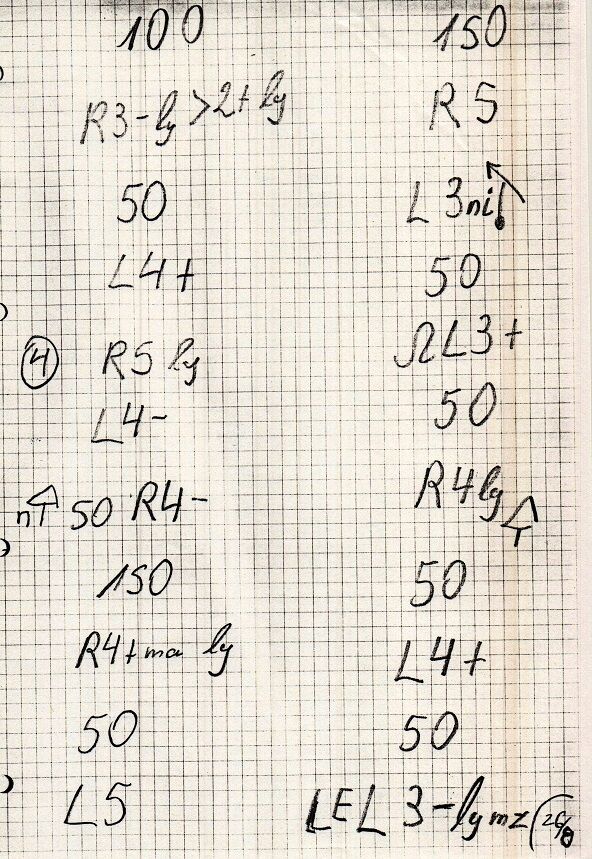 100
R3-ly>2+ly
50
L4+
4 R5 ly
L4-
50 R4-
150
R4+ma ly
50
L5
150
R5
L3ni!
50
ΩL3+
50
R4ly
50
L4+
50
LEL 3-lymz